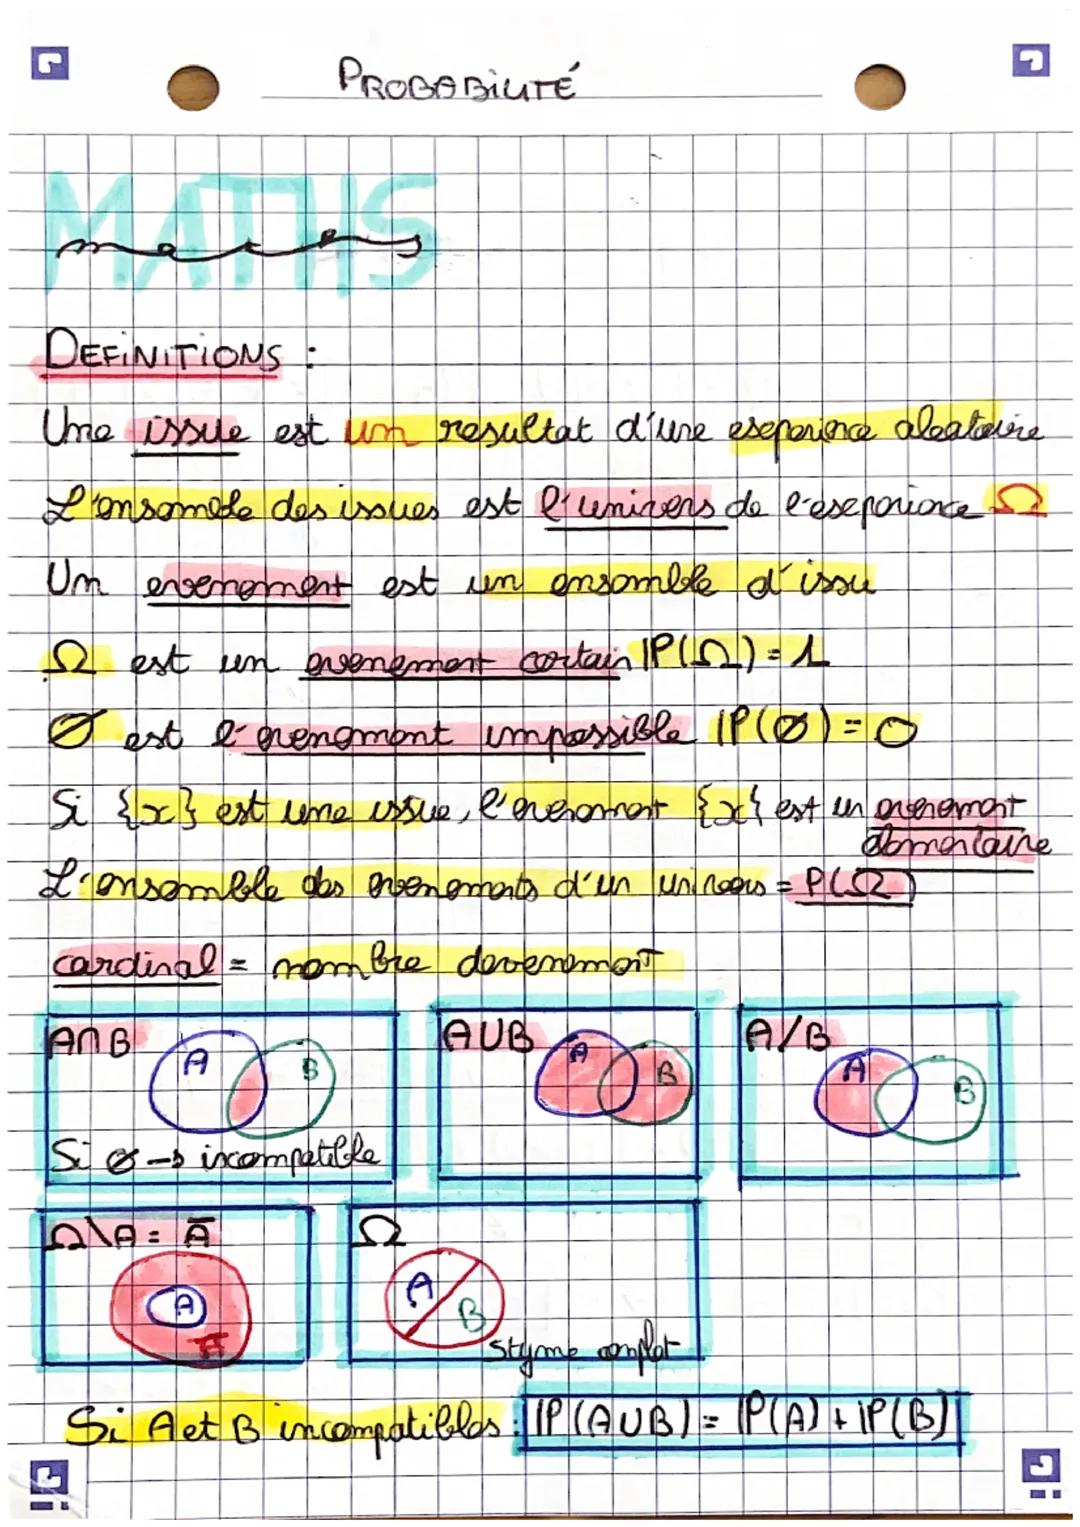 PROBABILITÉ
MATHS
maths
DEFINITIONS :
Une issue est un resultat d'une eseperience aleatoire
L'ensemble des issues est l'univers de l'eseperience Ω
Um evenement est un ensemble d'issu
Ω est un evenement certain IP(Ω) = 1
Ø est l'evenement impossible IP(Ø) = 0
Si {x} est une issue, l'evenement {x} est un evenement
elementaire
L'ensemble des evenements d'un univers = P(Ω)
cardinal = nombre devenement
A∩B A B
Si Ø → incompatible
A∪B A B
A/B A B
Ω\A = Ā
A Ā
Ω
A B
styme complet
Si A et B incompatibles : IP(A∪B) = IP(A) + IP(B)